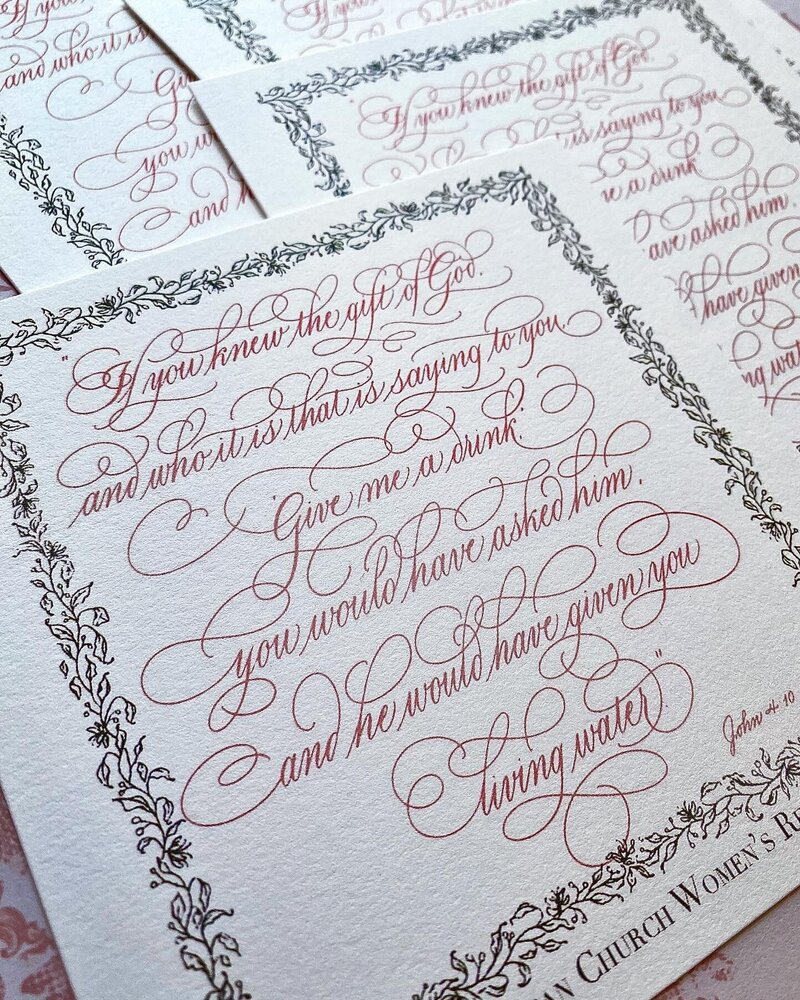 "If you knew the gift of God,
and who it is that is saying to you,
'Give me a drink.'
you would have asked him,
and he would have given you
living water."
John 4:10
Church Women's
If you
and who it is
Gi
you w
and h
If you
If you knew the gift of God,
is saying to you,
a drink
ave asked him,
have given
ng wat